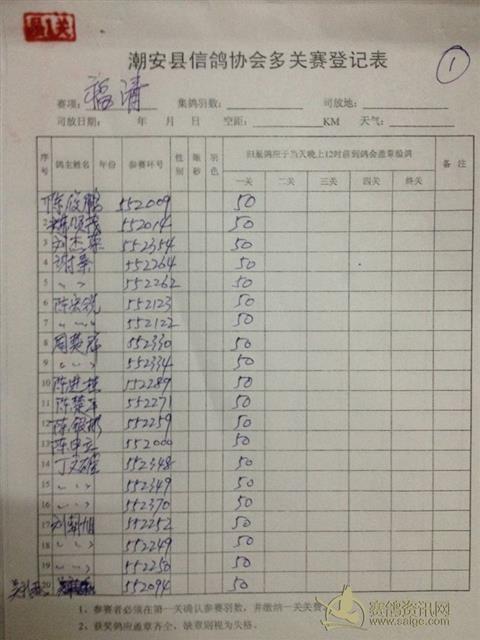 第1关
潮安县信鸽协会多关赛登记表
1
赛项: 福清 集鸽羽数: 司放地:
司放日期: 年 月 日 空距: KM 天气:
序号 鸽主姓名 年份 参赛环号 性别 眼砂 羽色 归巢鸽应于当天晚上12时前到鸽会盖章验鸽 备注
一关 二关 三关 四关 终关
552009 50
2 552014 50
3 刘杰英 552354 50
4 552264 50
5 〃 〃 552262 50
6 陈宏锐 552123 50
7 〃 〃 552122 50
8 周英 552330 50
9 〃 〃 552334 50
10 陈进 552289 50
11 陈楚 552271 50
12 陈银彬 552259 50
13 552000 50
14 552348 50
15 〃 〃 552349 50
16 〃 〃 552370 50
17 刘朝旭 552252 50
18 〃 〃 552249 50
19 〃 〃 552250 50
20 552094 50
1、参赛者必须在第一关确认参赛羽数,并缴纳一关关费
2、获奖鸽应盖章齐全,缺章则视为失格。
赛鸽资讯网
www.saige.com